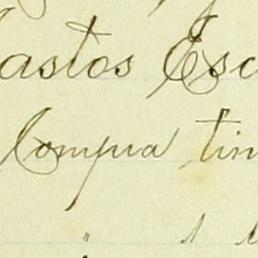 astos Esc
Compra tin
"